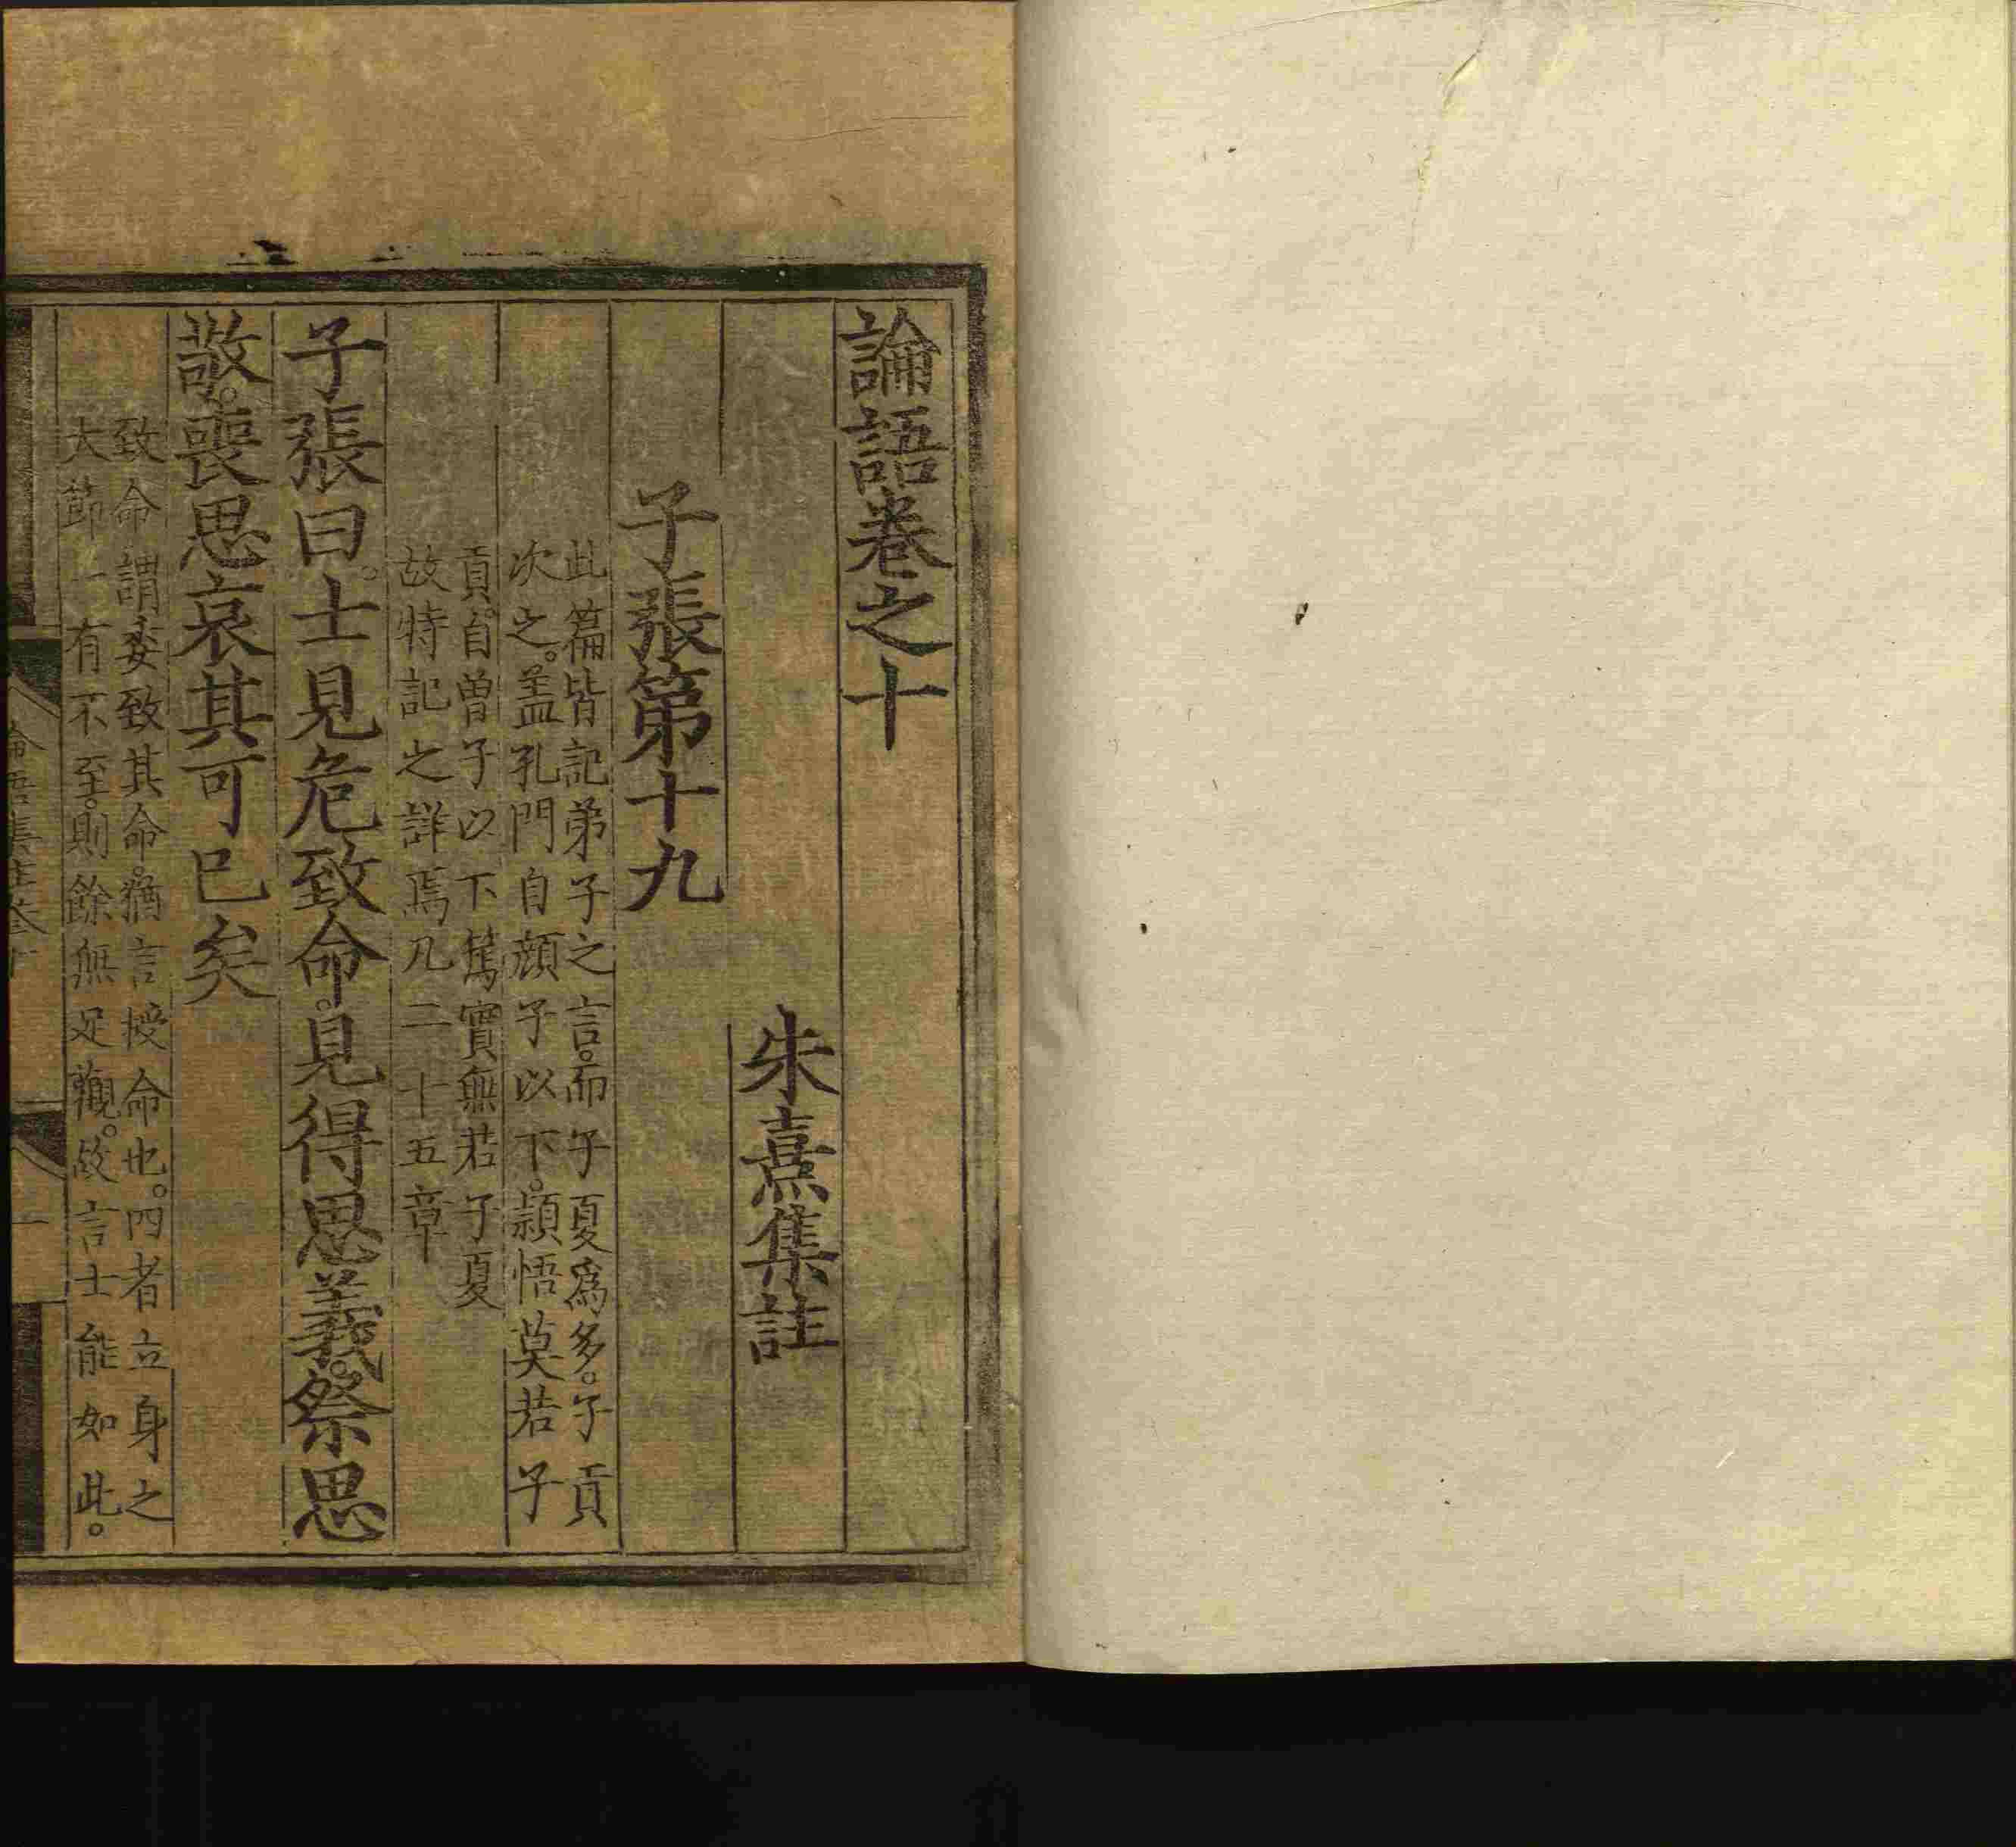 論語卷之十
朱熹集註
子張第十九
此篇皆記弟子之言。而子夏爲多。子貢
次之。盖孔門自顔子以下。頴悟莫若子
貢。自曾子以下篤實無若子夏
故特記之詳焉凡二十五章
子張曰。士見危致命。見得思義。祭思
敬。喪思哀其可已矣
致命謂委致其命。猶言授命也。四者立身之
大節一有不至。則餘無足觀。故言士能如此。